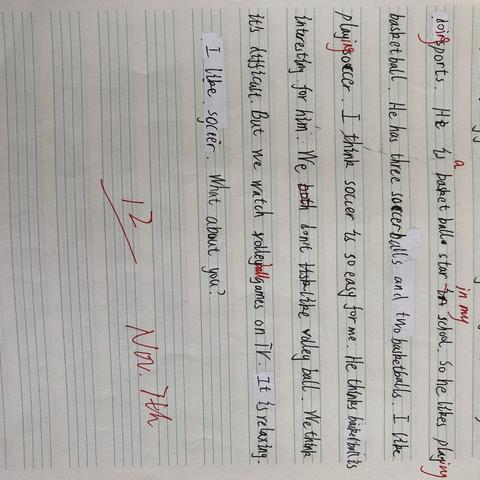 doing sports. He is a basketball star in my school. So he likes playing
basketball. He has three soccerballs and two basketballs. I like
playing soccer. I think soccer is so easy for me. He thinks basketball is
interesting for him. We both don't like volleyball. We think
it's difficult. But we watch volleyball games on TV. It is relaxing.
I like soccer. What about you?
12
Nov. 7th